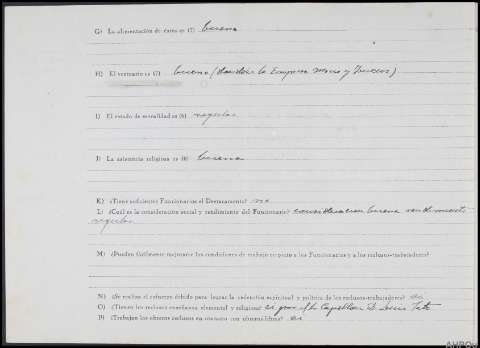 G) La alimentación de éstos es (7) buena
H) El vestuario es (7) buena (dandole la Empresa Mono y)
I) El estado de moralidad es (8) regular
J) La asistencia religiosa es (8) buena
K) ¿Tiene suficientes Funcionarios el Destacamento? no
L) ¿Cuál es la consideración social y rendimiento del Funcionario? consideracion buena rendimiento
regular
M) ¿Pueden fácilmente mejorarse las condiciones de trabajo respecto a los Funcionarios y a los reclusos-trabajadores?
N) ¿Se realiza el esfuerzo debido para lograr la redención espiritual y política de los reclusos-trabajadores?
O) ¿Tienen los reclusos enseñanza elemental y religiosa? el Capellan D. Luis
P) ¿Trabajan los obreros reclusos en contacto con obreros libres?
AHPOu